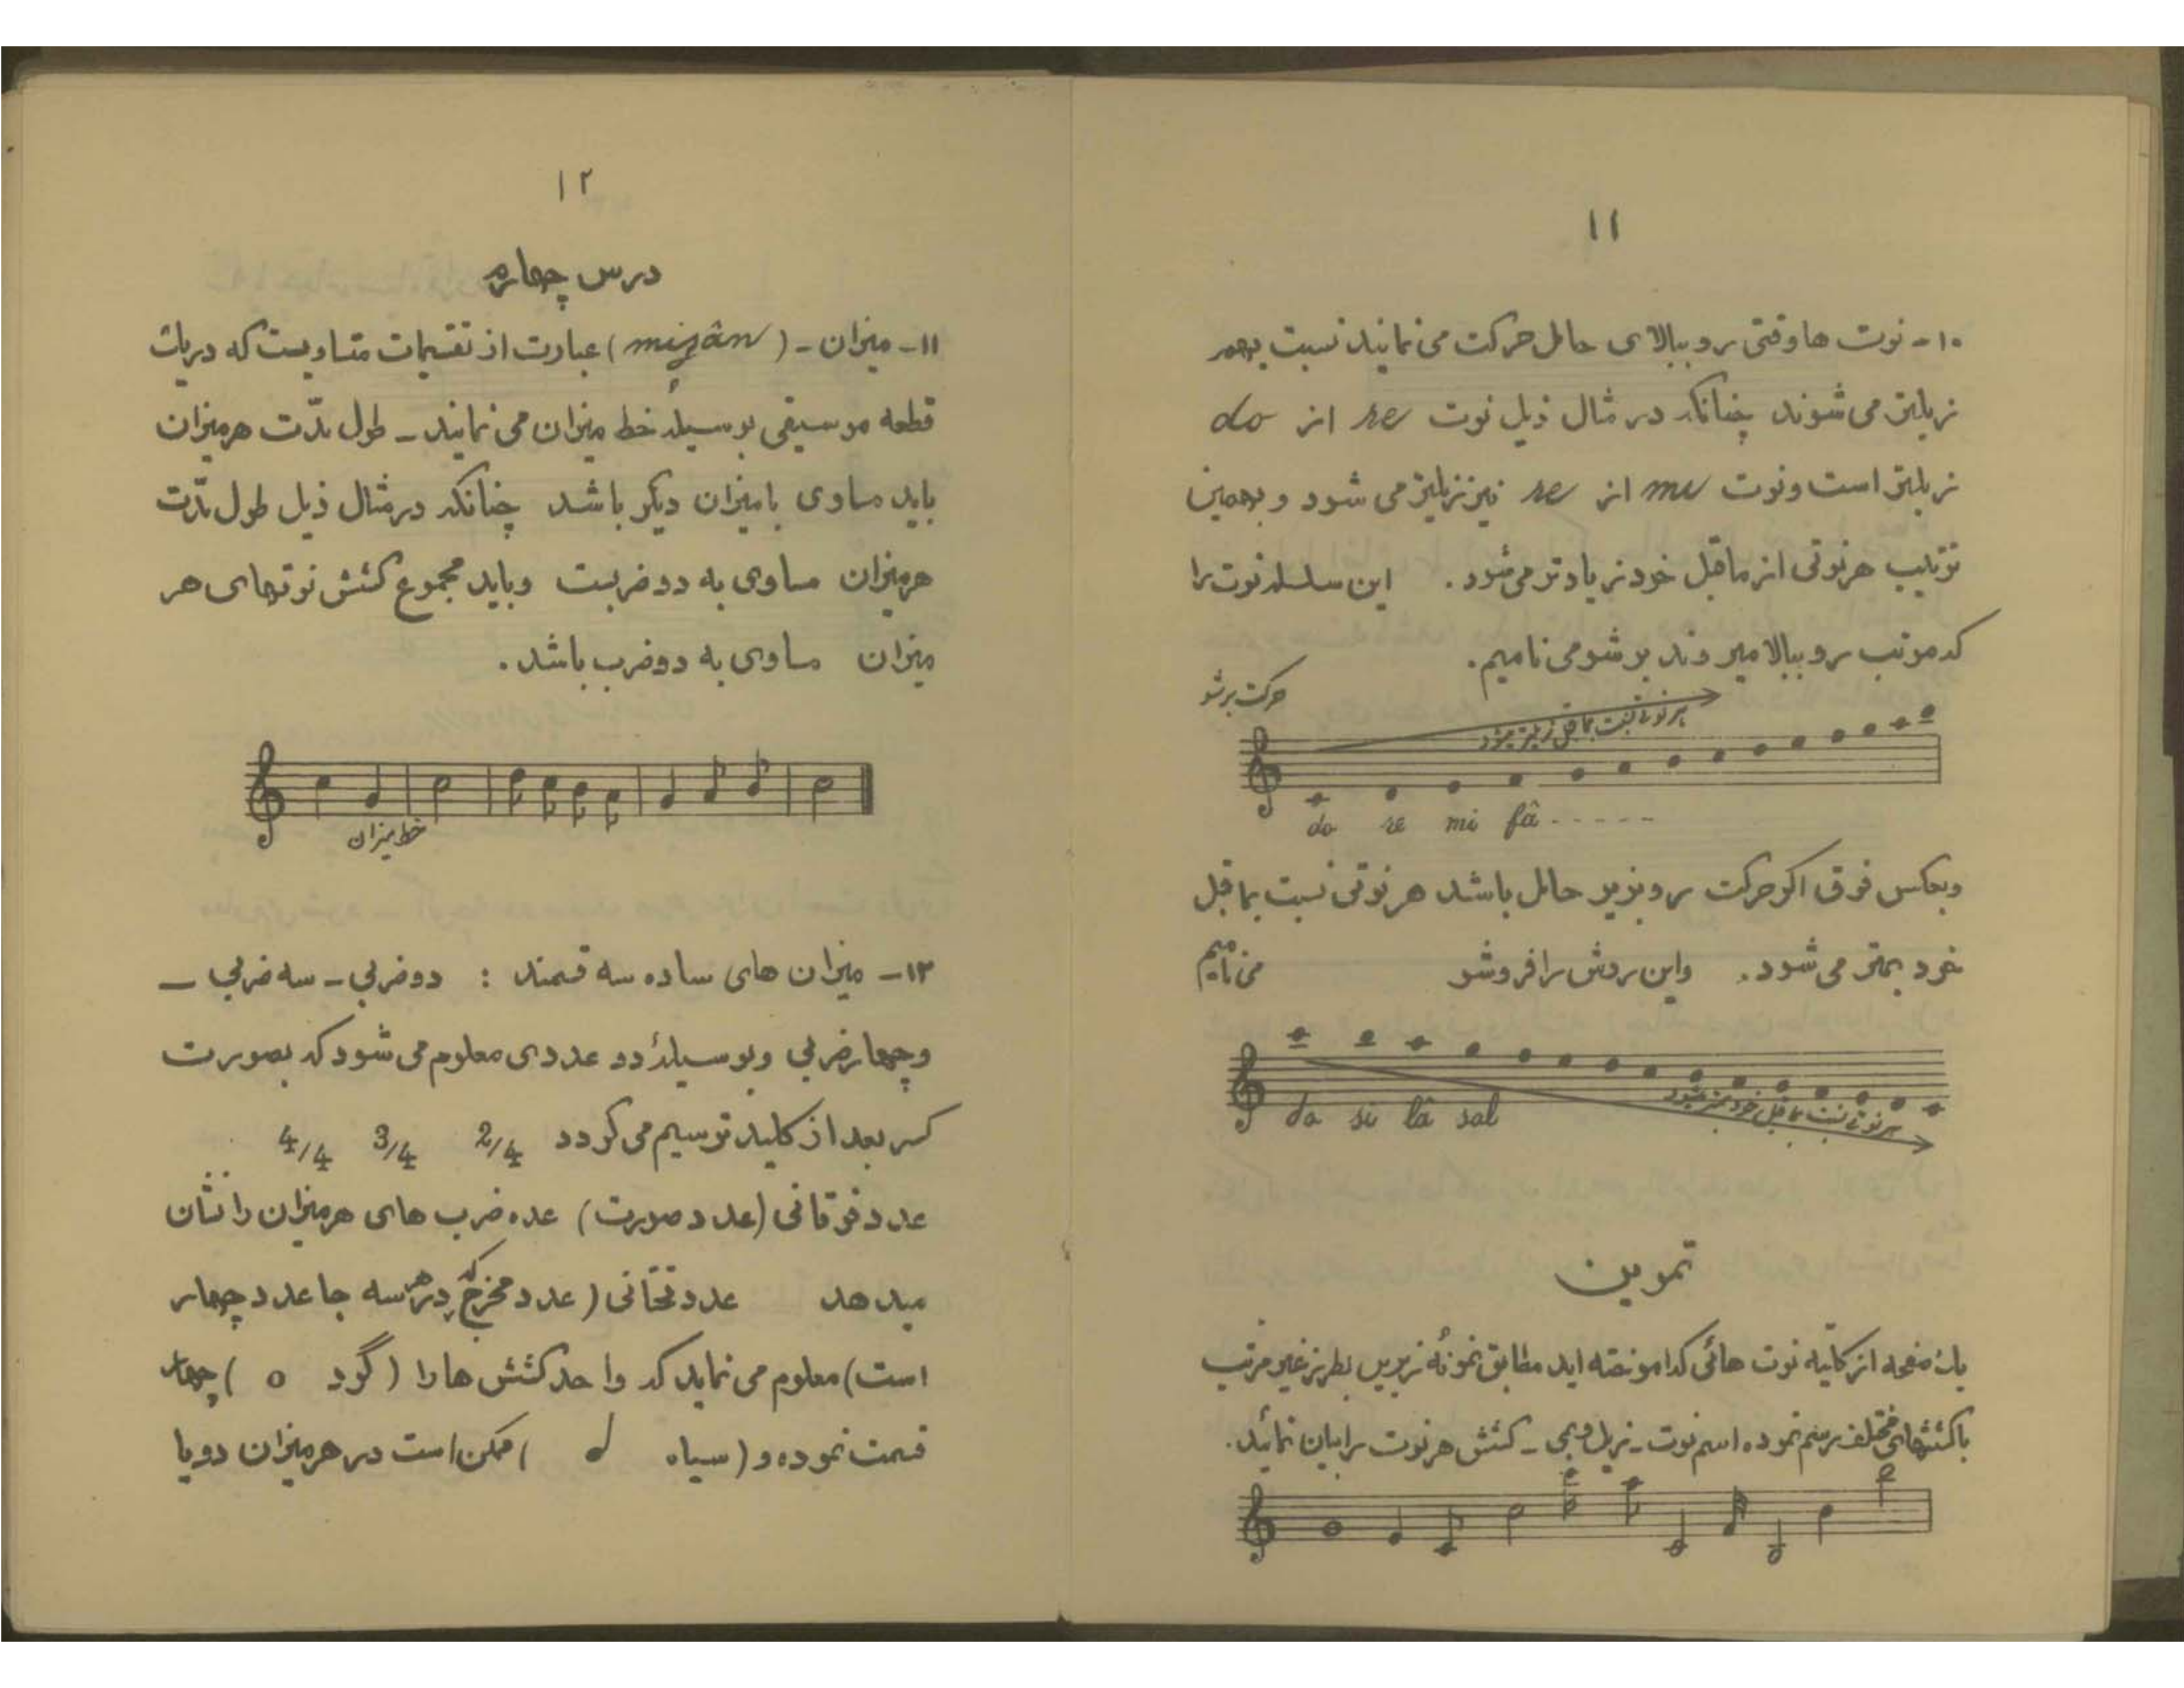 ۱۱
۱۰- نوت ها وقتی رو ببالای حامل حرکت می نمایند نسبت بهم
زیلتر می شوند چنانکه در مثال ذیل نوت re از do
زیلتر است و نوت mi از re نیز زیلتر می شود و بهمین
ترتیب هر نوتی از ماقبل خود زیادتر می شود. این سلسله نوت را
که مرتب رو ببالا میروند بر شو می نامیم.
حرکت بر شو
هر نوتی نسبت بماقبل زیلتر میشود
do re mi fâ - - - - -
وبعکس فوق اگر حرکت رو بزیر حامل باشد هر نوتی نسبت بماقبل
خود بمتر می شود. واین روش را فروشو می نامیم
do si lâ sol
هر نوتی نسبت بماقبل خود بمتر میشود
تمرین
یک صفحه از کلیه نوت هائی که اموخته اید مطابق نمونهٔ زیرین بطرز غیر مرتب
با کششهای مختلف رسم نموده اسم نوت - زیل و بمی - کشش هر نوت را بیان نمائید.
۱۲
درس چهارم
۱۱- میزان - (mizân) عبارت از تقسیمات متساویست که در یک
قطعه موسیقی بوسیلهٔ خط میزان می نمایند - طول مدّت هر میزان
باید مساوی با میزان دیگر باشد چنانکه در مثال ذیل طول مدّت
هر میزان مساوی به دو ضربست و باید مجموع کشش نوتهای هر
میزان مساوی به دو ضرب باشد.
خط میزان
۱۲- میزان های ساده سه قسمند : دو ضربی - سه ضربی -
و چهار ضربی و بوسیلهٔ دو عددی معلوم می شود که بصورت
کسر بعد از کلید ترسیم می گردد 2/4 3/4 4/4 .
عدد فوقانی (عدد صورت) عده ضرب های هر میزان را نشان
میدهد عدد تحتانی (عدد مخرج که در هر سه جا عدد چهار
است) معلوم می نماید که واحد کشش ها را (گرد o) چهار
قسمت نموده و (سیاه ) ممکن است در هر میزان دو یا